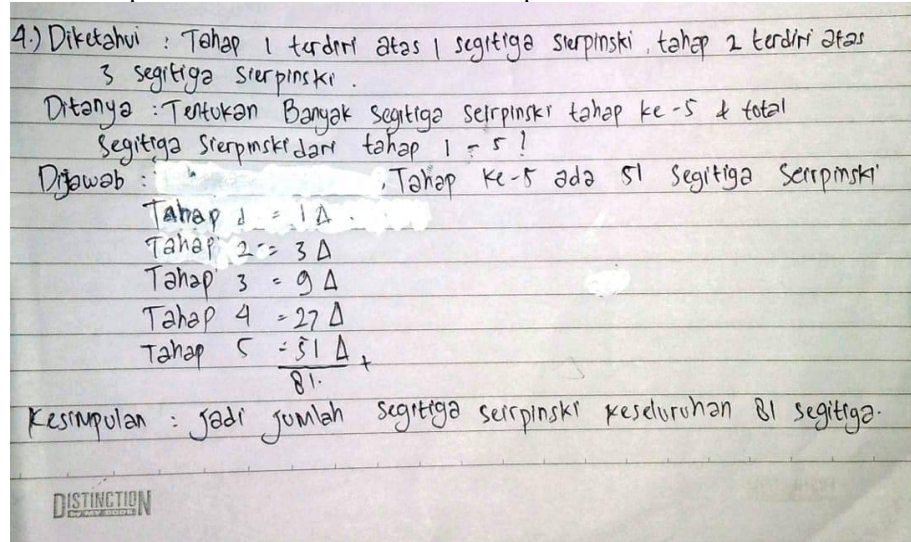 4.) Diketahui : Tahap 1 terdiri atas 1 segitiga sierpinski, tahap 2 terdiri atas
3 segitiga sierpinski.
Ditanya : Tentukan Banyak segitiga seirpinski tahap ke-5 & total
segitiga sierpinski dari tahap 1 - 5 !
Dijawab : , Tahap ke-5 ada 51 segitiga seirpinski
Tahap 1 = 1 Δ .
Tahap 2 = 3 Δ
Tahap 3 = 9 Δ
Tahap 4 = 27 Δ
Tahap 5 = 51 Δ +
81.
Kesimpulan : Jadi jumlah segitiga seirpinski keseluruhan 81 segitiga.
DISTINCTION
BY MY BOOK